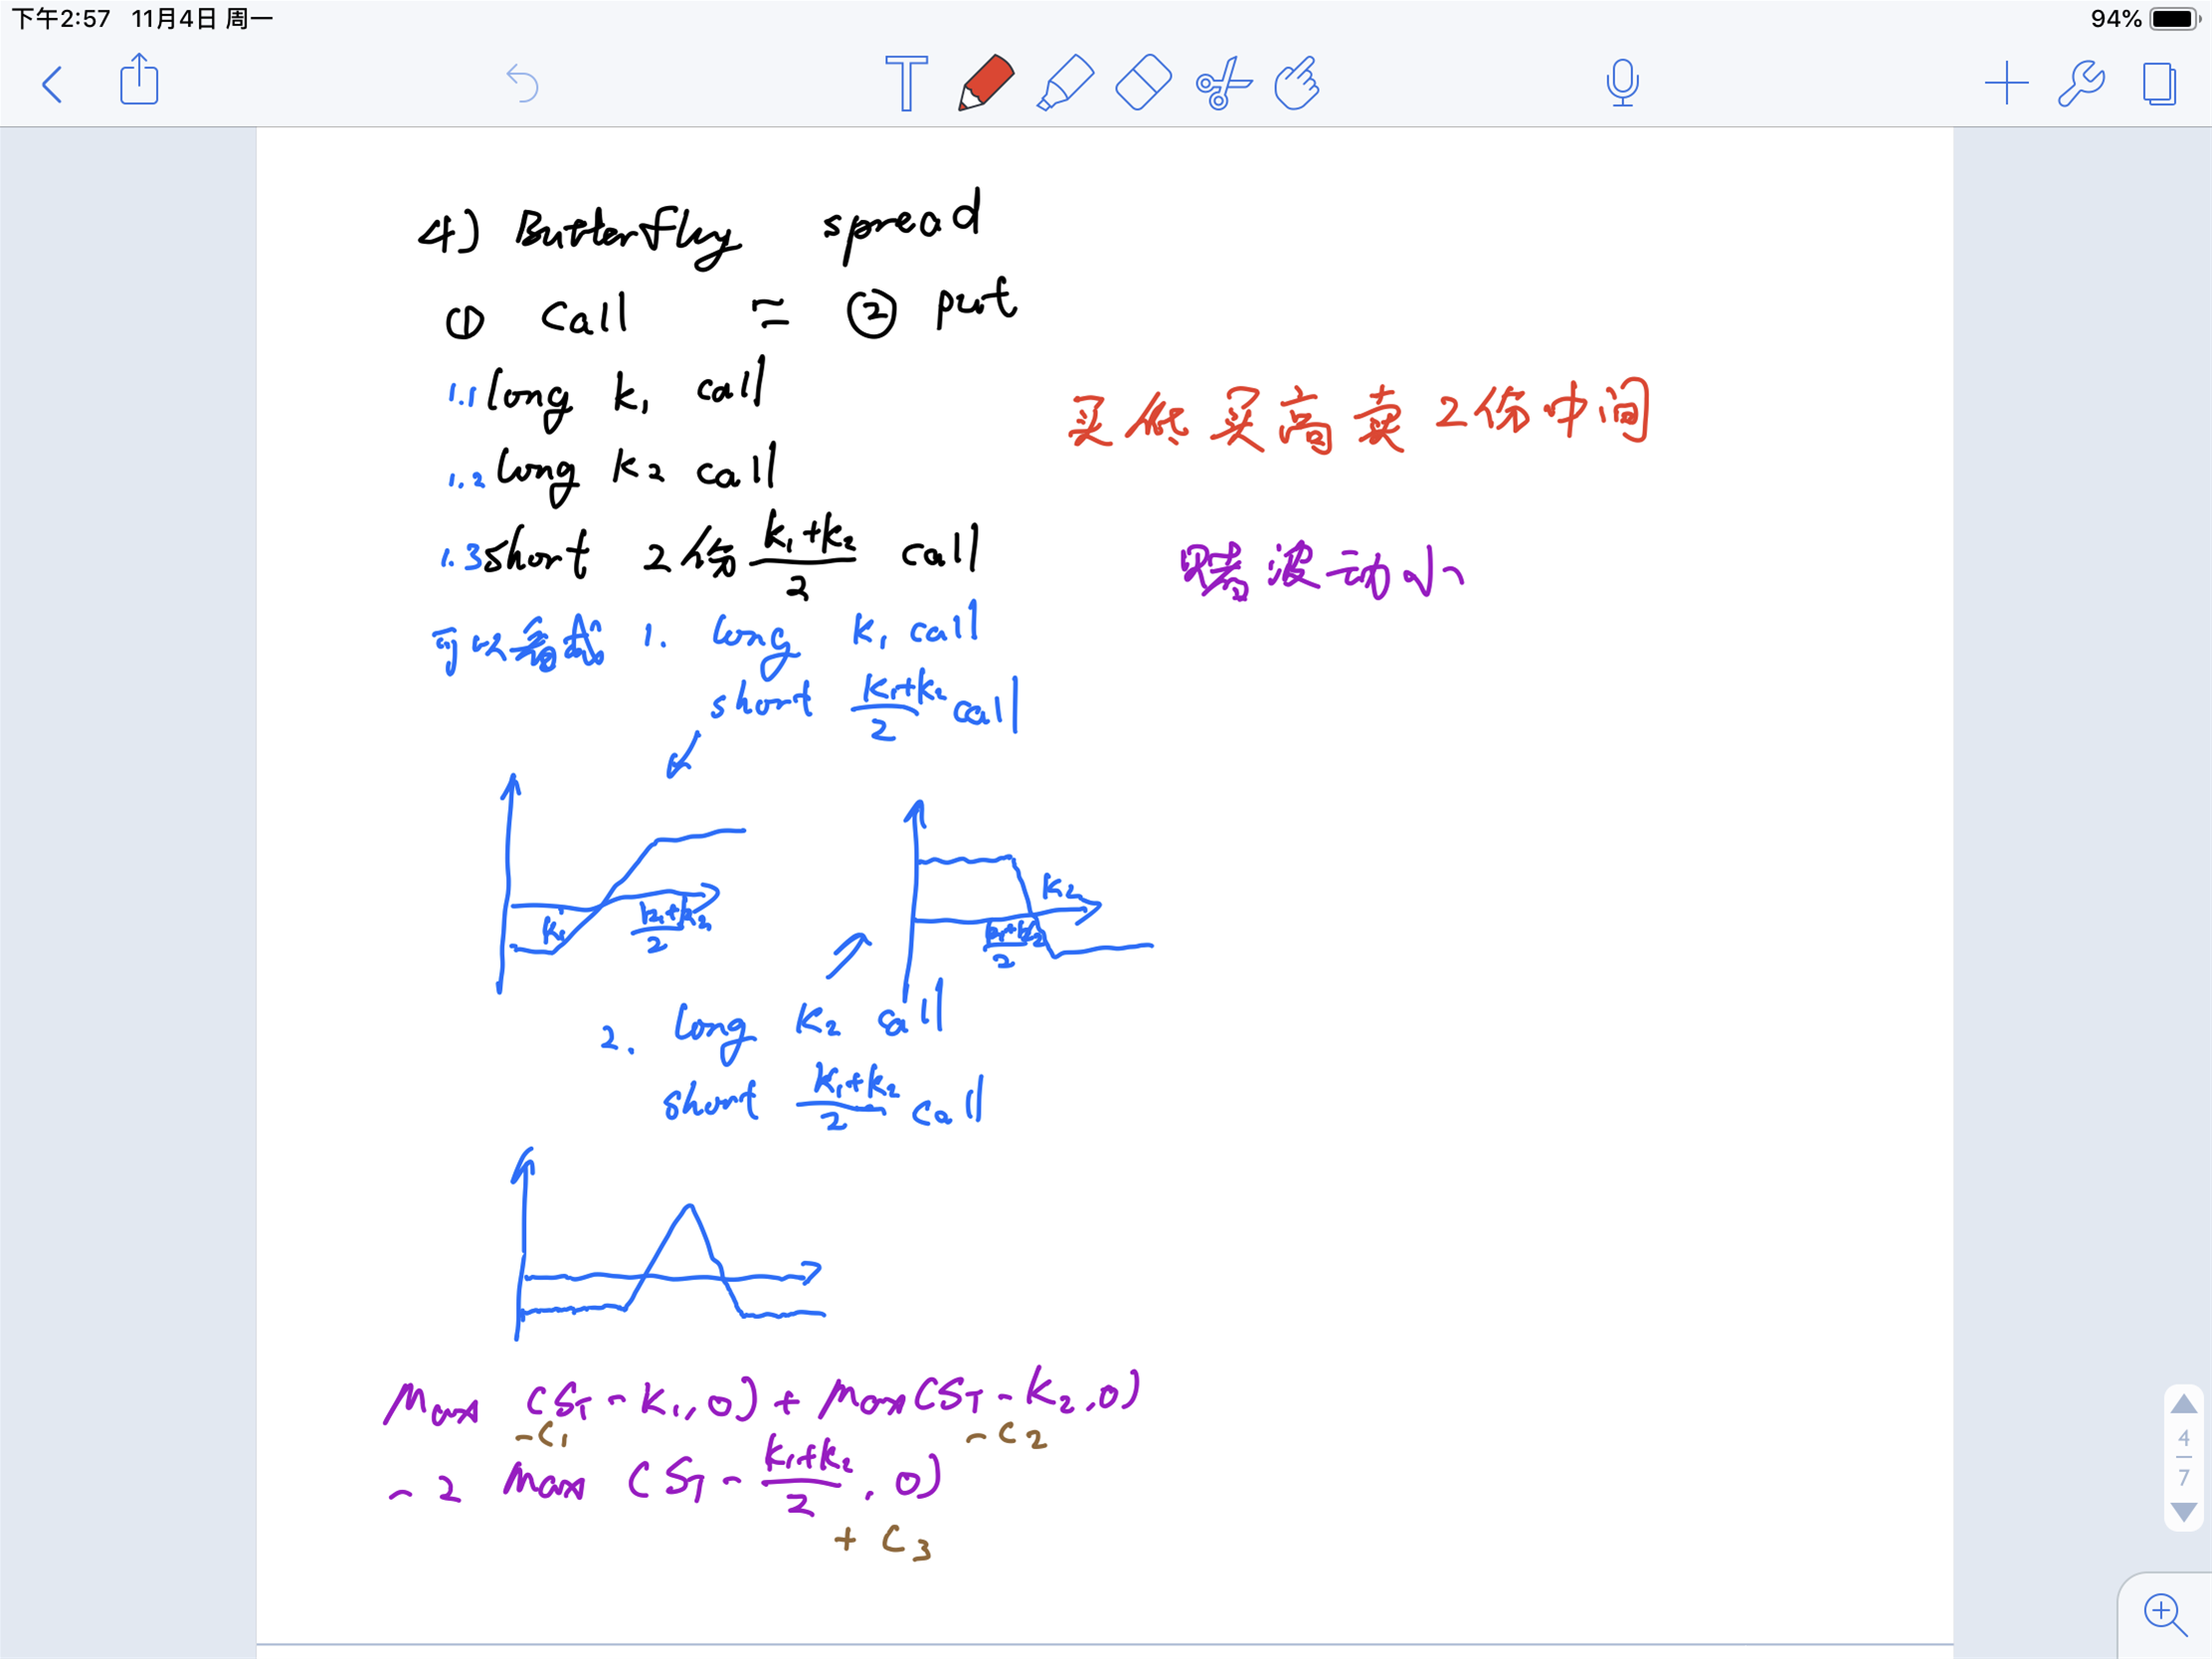 下午2:57 11月4日 周一
94%
T
4) Butterfly spread
① Call ≃ ② put
1.1 long k₁ call
买低买高卖2份中间
1.2 long k₂ call
1.3 short 2份 (k₁+k₂)/2 call
赌波动小
可以看成 1. long k₁ call
short (k₁+k₂)/2 call
k₁ (k₁+k₂)/2
k₂
(k₁+k₂)/2
2. long k₂ call
short (k₁+k₂)/2 call
Max (S_T - k₁, 0) + Max (S_T - k₂, 0)
- C₁ - C₂
- 2 Max (S_T - (k₁+k₂)/2, 0)
+ C₃
4
7